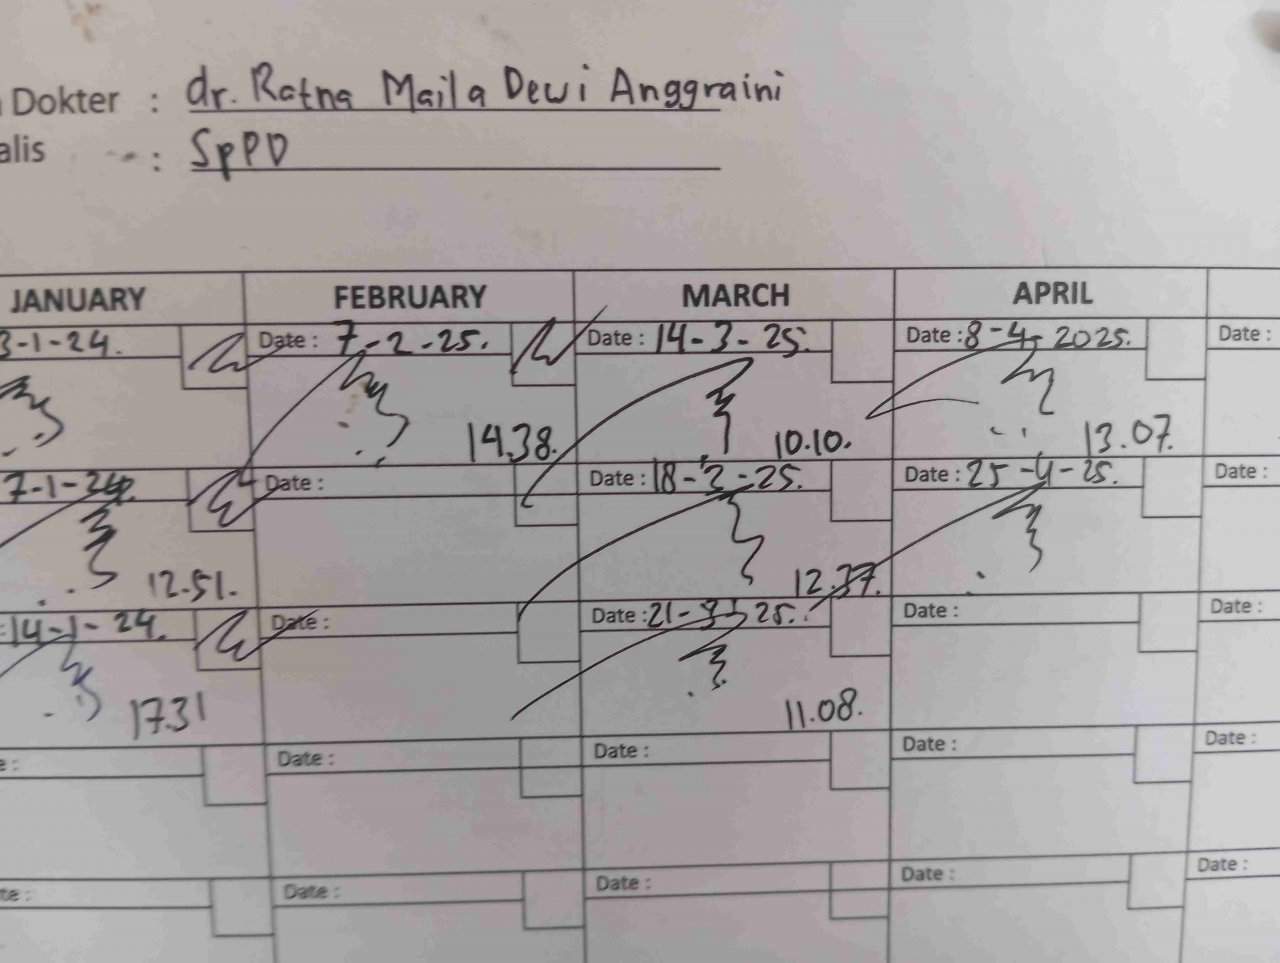 Dokter : dr. Ratna Maila Dewi Anggraini
alis : SpPD
JANUARY FEBRUARY MARCH APRIL
3-1-24. Date : 7-2-25. Date : 14-3-25. Date : 8-4-2025. Date :
14.38. 10.10. 13.07.
7-1-24. Date : Date : 18-2-25. Date : 25-4-25. Date :
12.51. 12.37.
14-1-24. Date : Date : 21-3-25. Date : Date :
17.31 11.08.
e : Date : Date : Date : Date :
te : Date : Date : Date : Date :